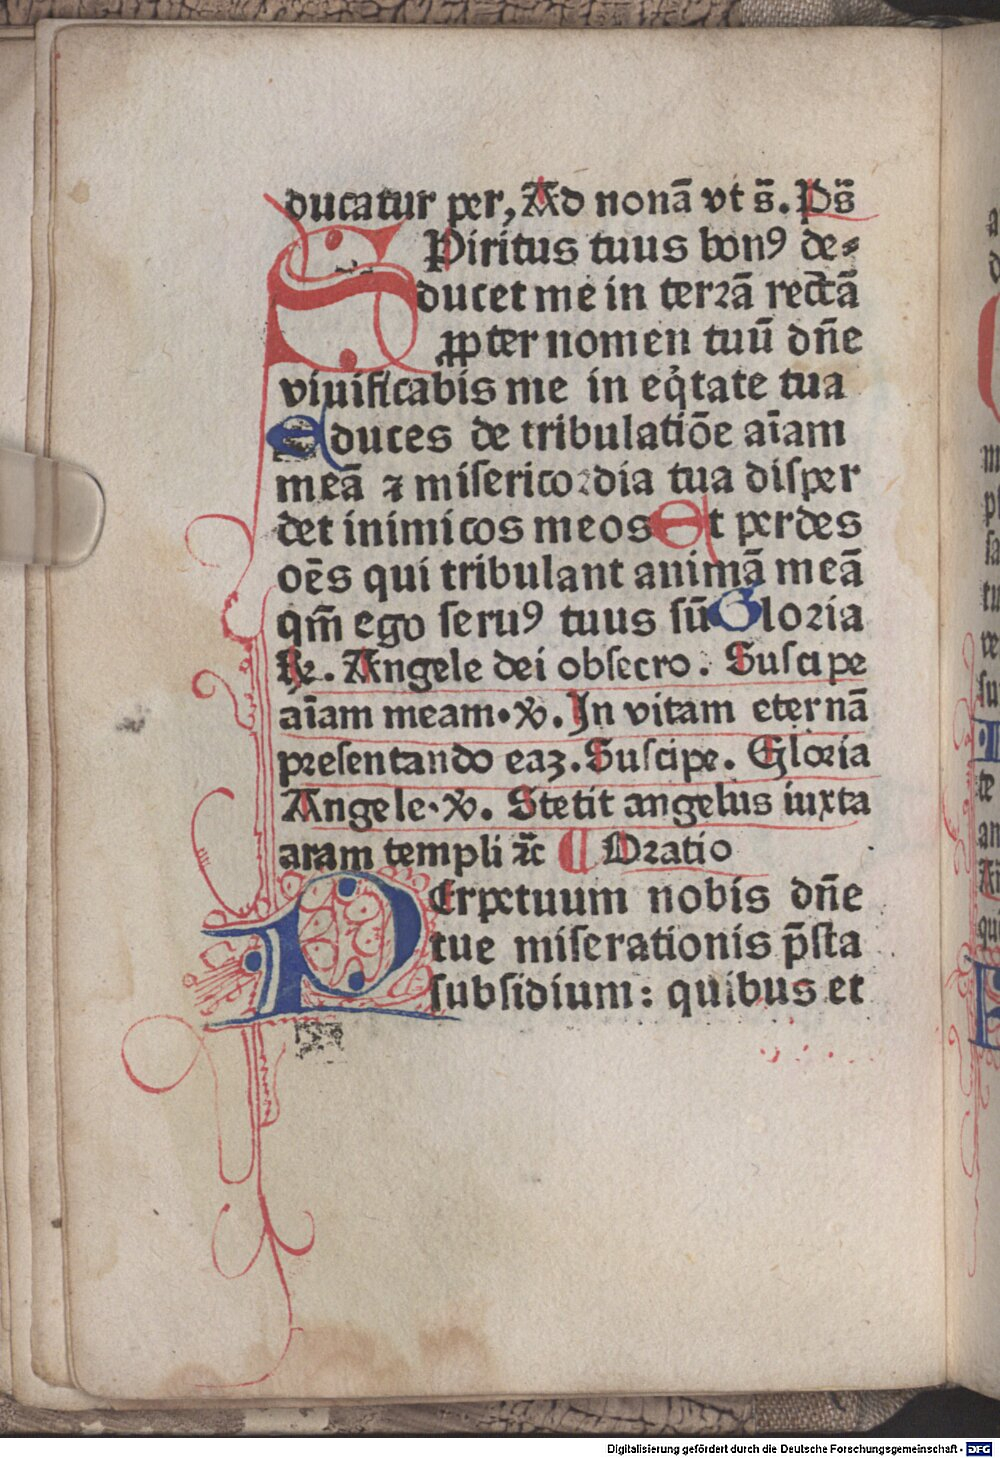 ducatur per, Ad nonā vt s̄. Ps̄
SPiritus tuus bonꝰ de⸗
ducet me in terrā rectā
ꝓpter nomen tuū dn̄e
viuificabis me in eqͥtate tua
Educes de tribulatiōe aīam
meā ⁊ miſericordia tua diſper
det inimicos meos Et perdes
oēs qui tribulant animā meā
qm̄ ego ſeruꝰ tuus ſū Gloria
R̄. Angele dei obſecro. Suſcipe
aīam meam. ℣. In vitam eternā
preſentando eaꝫ. Suſcipe. Gloria
Angele. ℣. Stetit angelus iuxta
aram templi ⁊c̄ ¶ Oratio
PErpetuum nobis dn̄e
tue miſerationis p̄ſta
ſubſidium: quibus et
Digitalisierung gefördert durch die Deutsche Forschungsgemeinschaft - DFG